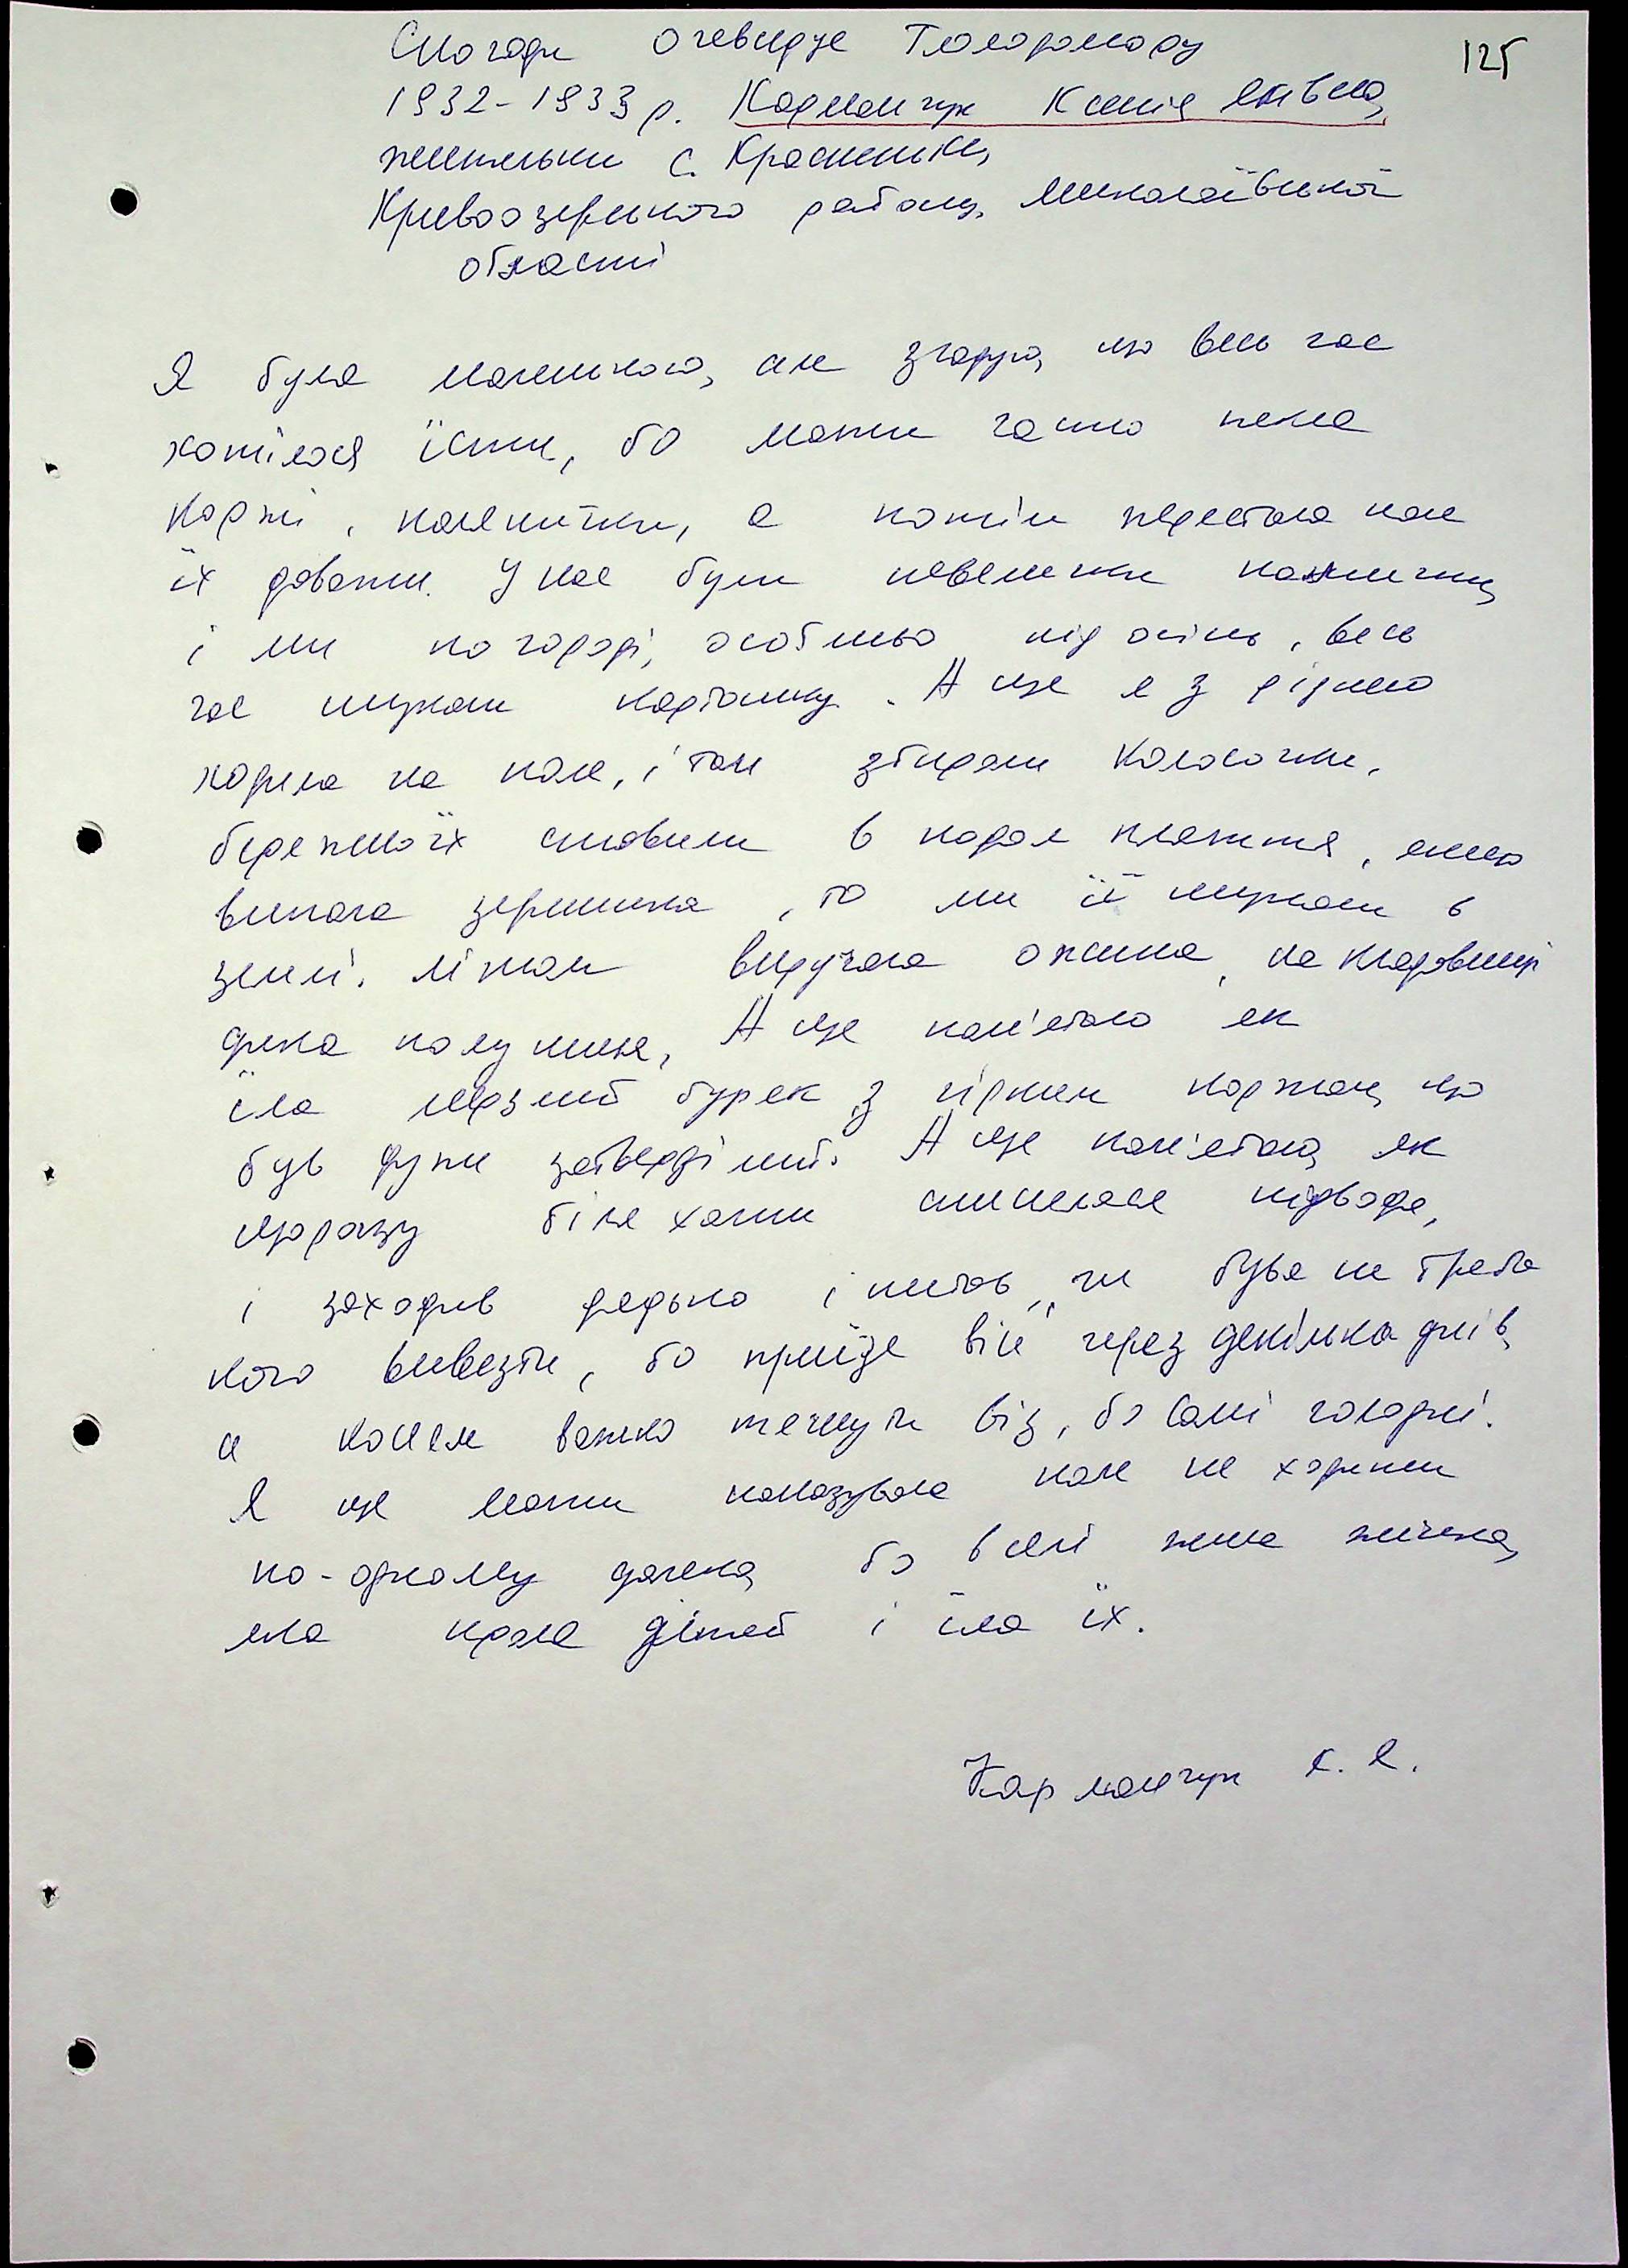 Спогади очевидця Голодомору
125
1932-1933 р. Карманчук Ксенія Яківна,
жительки с. Красненьке,
Кривоозерського району, Миколаївської
області
Я була маленькою, але згадую, що весь час
хотілося їсти, бо мати часто пекла
коржі, а потім перестала нам
їх давати. У нас були невеличкі
і ми по городі, особливо під осінь, весь
час шукали картошку. А ще я з рідною
ходила на поле, і там збирали колосочки,
бережно їх ставили в подол плаття, якщо
випала зернинка, то ми її шукали в
землі. Літом виручала ожина, на кладовищі
дика полуниця. А ще пам'ятаю як
їла мерзлий буряк з гірким коржом, що
був дуже затверділий. А ще пам'ятаю, як
щоразу біля хати спинялася підвода,
і заходив дядько і питав „чи бува не треба
кого вивезти, бо приїде він" через декілька днів,
а коням важко тягнути віз, бо самі голодні.
А ще мати наказувала нам не ходити
по-одному далеко, бо в селі жила жінка,
яка крала дітей і їла їх.
Карманчук К. Я.